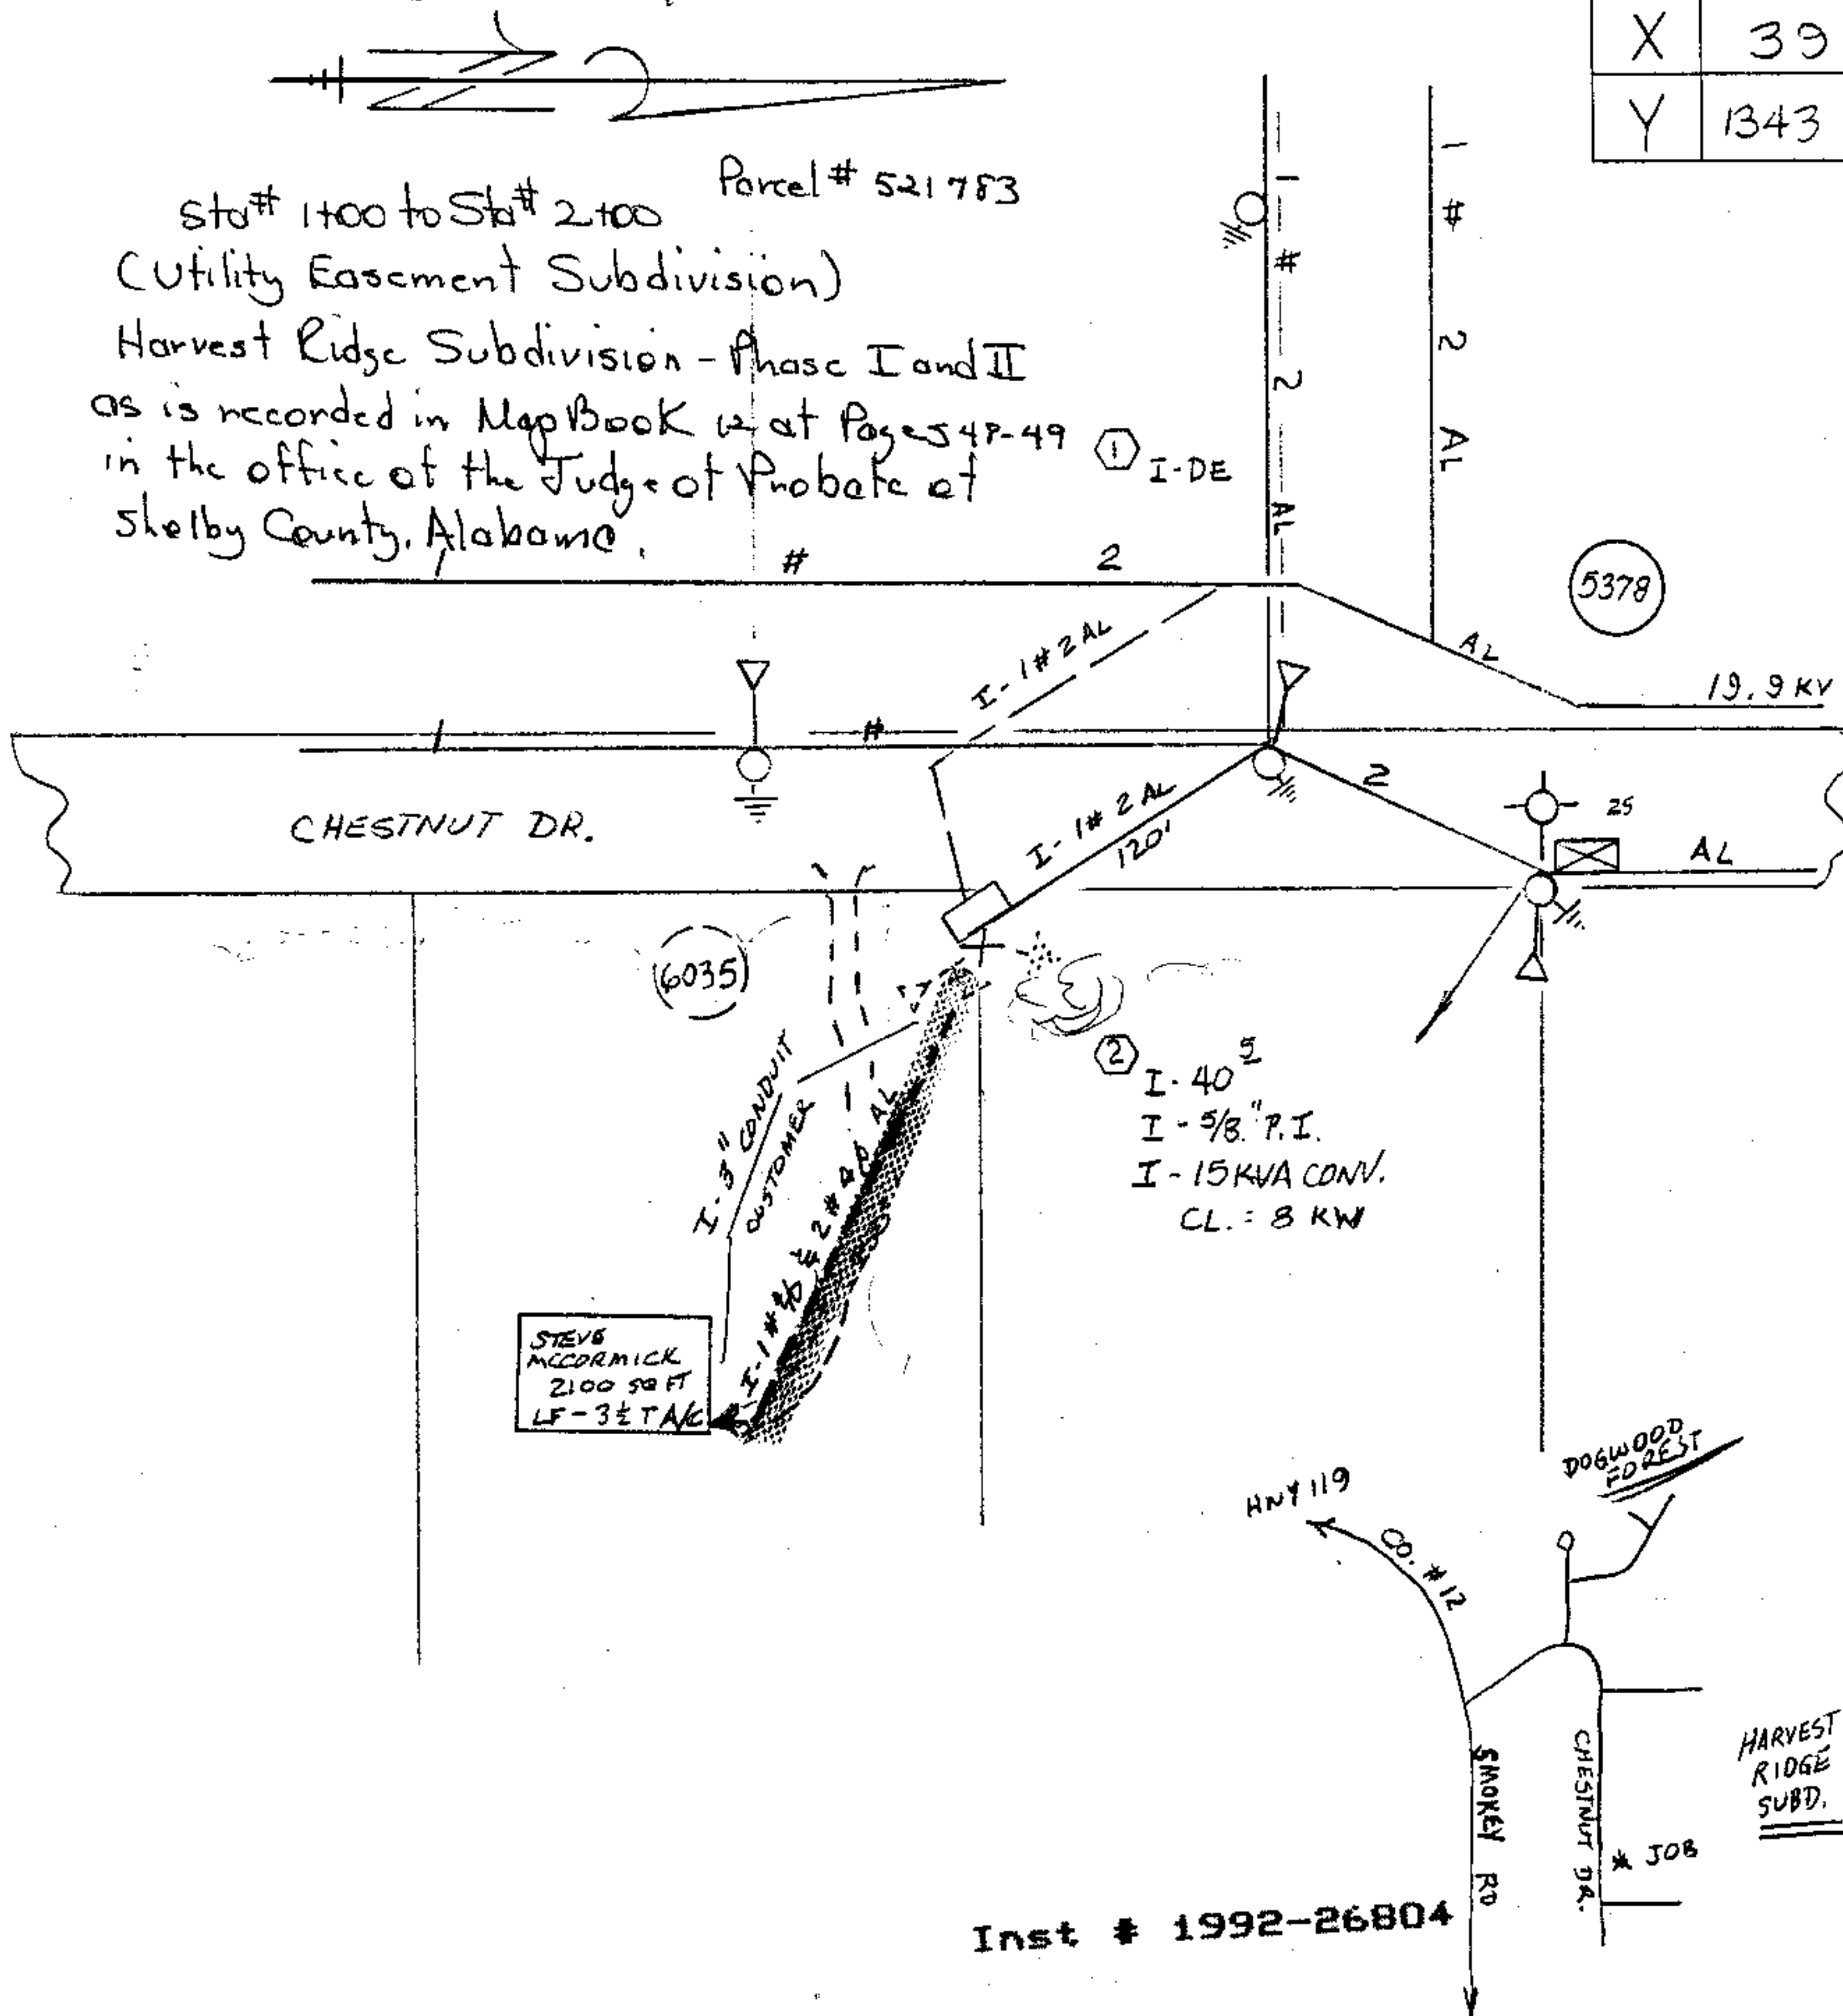 X 39
Y 1343
Parcel # 521783
Sta# 1+00 to Sta# 2+00
(Utility Easement Subdivision)
Harvest Ridge Subdivision - Phase I and II
as is recorded in Map Book 12 at Pages 48-49
in the office of the Judge of Probate of
Shelby County, Alabama.
1 I-DE
1 # 2 AL
1 # 2 AL
1 # 2 AL
5378
19.9 KV
I - 1 # 2 AL
1 # 2 AL
25
CHESTNUT DR.
I - 1 # 2 AL
120'
6035
2 I - 40 5
I - 5/8" P.I.
I - 15 KVA CONV.
CL. = 8 KW
I - 3" CONDUIT
CUSTOMER
I - 1 # 2/0 & 2 # 4/0 AL
STEVE
MCCORMICK
2100 SQ FT
LF - 3½ T A/C
DOGWOOD
FOREST
HWY 119
CO. #12
SMOKEY RD
CHESTNUT DR.
* JOB
HARVEST
RIDGE
SUBD.
Inst # 1992-26804